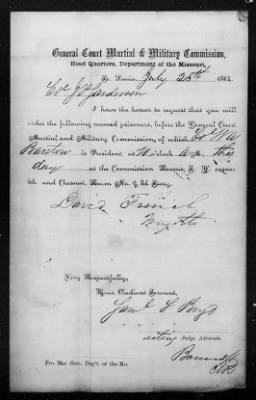 General Court Martial & Military Commission,
Head Quarters, Department of the Missouri,
St. Louis, July 25th 1864.
Col J P Sanderson
I have the honor to request that you will
order the following named prisoners, before the General Court
Martial and Military Commission, of which Col W A
Barstow is President, at 10 o'clock A M., this
day at the Commission Rooms, S W corner
5th and Chesnut, Room No. 3d Story.
David French
Very Respectfully,
Your Obedient Servant,
Boyd
acting Judge Advocate.
Pro. Mar. Gen. Dep't. of the Mo.